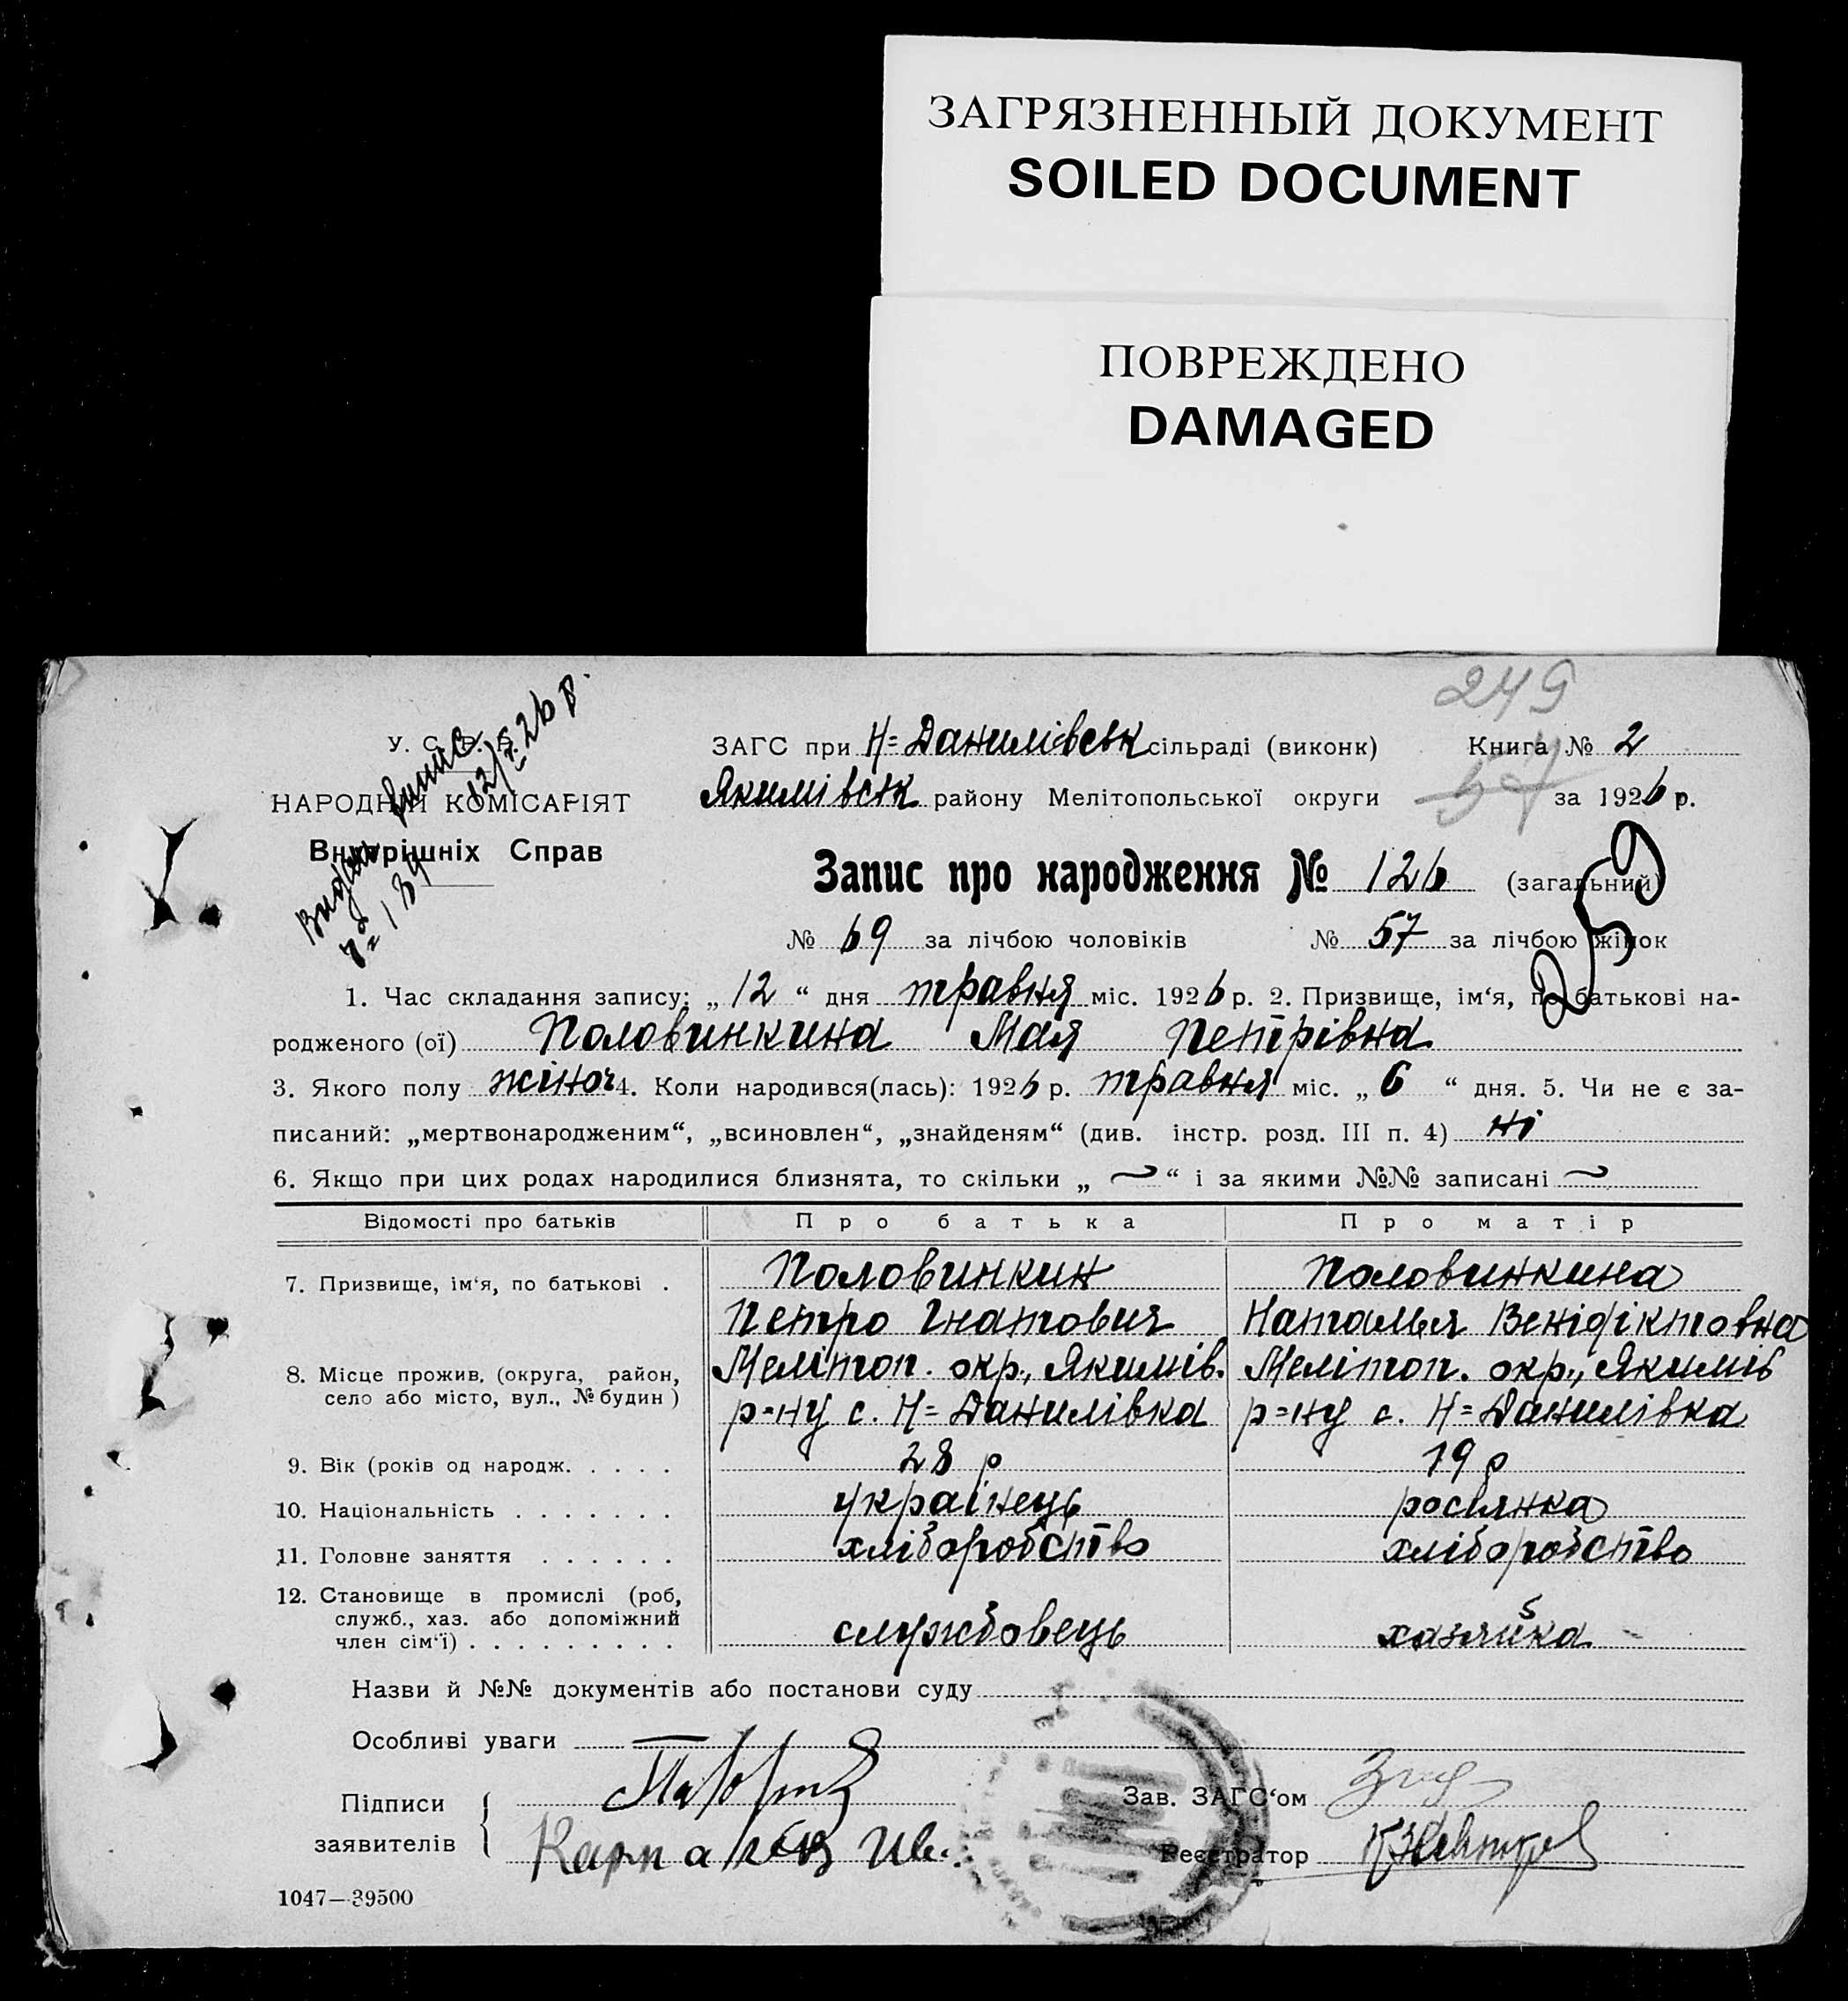 ЗАГРЯЗНЕННЫЙ ДОКУМЕНТ
SOILED DOCUMENT
ПОВРЕЖДЕНО
DAMAGED
249
У. С. Р. Р.
НАРОДНИЙ КОМІСАРІЯТ
Внутрішніх Справ
Видан випис
№ 189
12/V 26 р.
ЗАГС при Н=Данилівськ сільраді (виконк) Книга № 2
Якимівськ району Мелітопольської округи 57 за 1926 р.
Запис про народження № 126 (загальний)
259
№ 69 за лічбою чоловіків № 57 за лічбою жінок
1. Час складання запису: „ 12 “ дня травня міс. 1926 р. 2. Призвище, ім‘я, по батькові на-
родженого (ої) Половинкина Мая Петрівна
3. Якого полу жіноч 4. Коли народився(лась): 1926 р. травня міс. „ 6 “ дня. 5. Чи не є за-
писаний: „мертвонародженим“, „всиновлен“, „знайденям“ (див. інстр. розд. III п. 4) ні
6. Якщо при цих родах народилися близнята, то скільки „ ~ “ і за якими №№ записані ~
Відомості про батьків Про батька Про матір
7. Призвище, ім‘я, по батькові . Половинкин Половинкина
Петро Гнатович Наталья Венідіктовна
8. Місце прожив. (округа, район, Меліпоп. окр., Якимів. Меліпоп. окр., Якимів
село або місто, вул., № будин ) р=ну с. Н=Данилівка р=ну с. Н=Данилівка
9. Вік (років од народж. . . . . 28 р 19 р
10. Національність . . . . . . . українець росіянка
11. Головне заняття . . . . . . хліборобство хліборобство
12. Становище в промислі (роб,
служб., хаз. або допоміжний
член сім‘ї) . . . . . . . . . службовець хазяйка
Назви й №№ документів або постанови суду
Особливі уваги
Підписи
заявителів
Зав. ЗАГС‘ом
Реєстратор
1047—39500